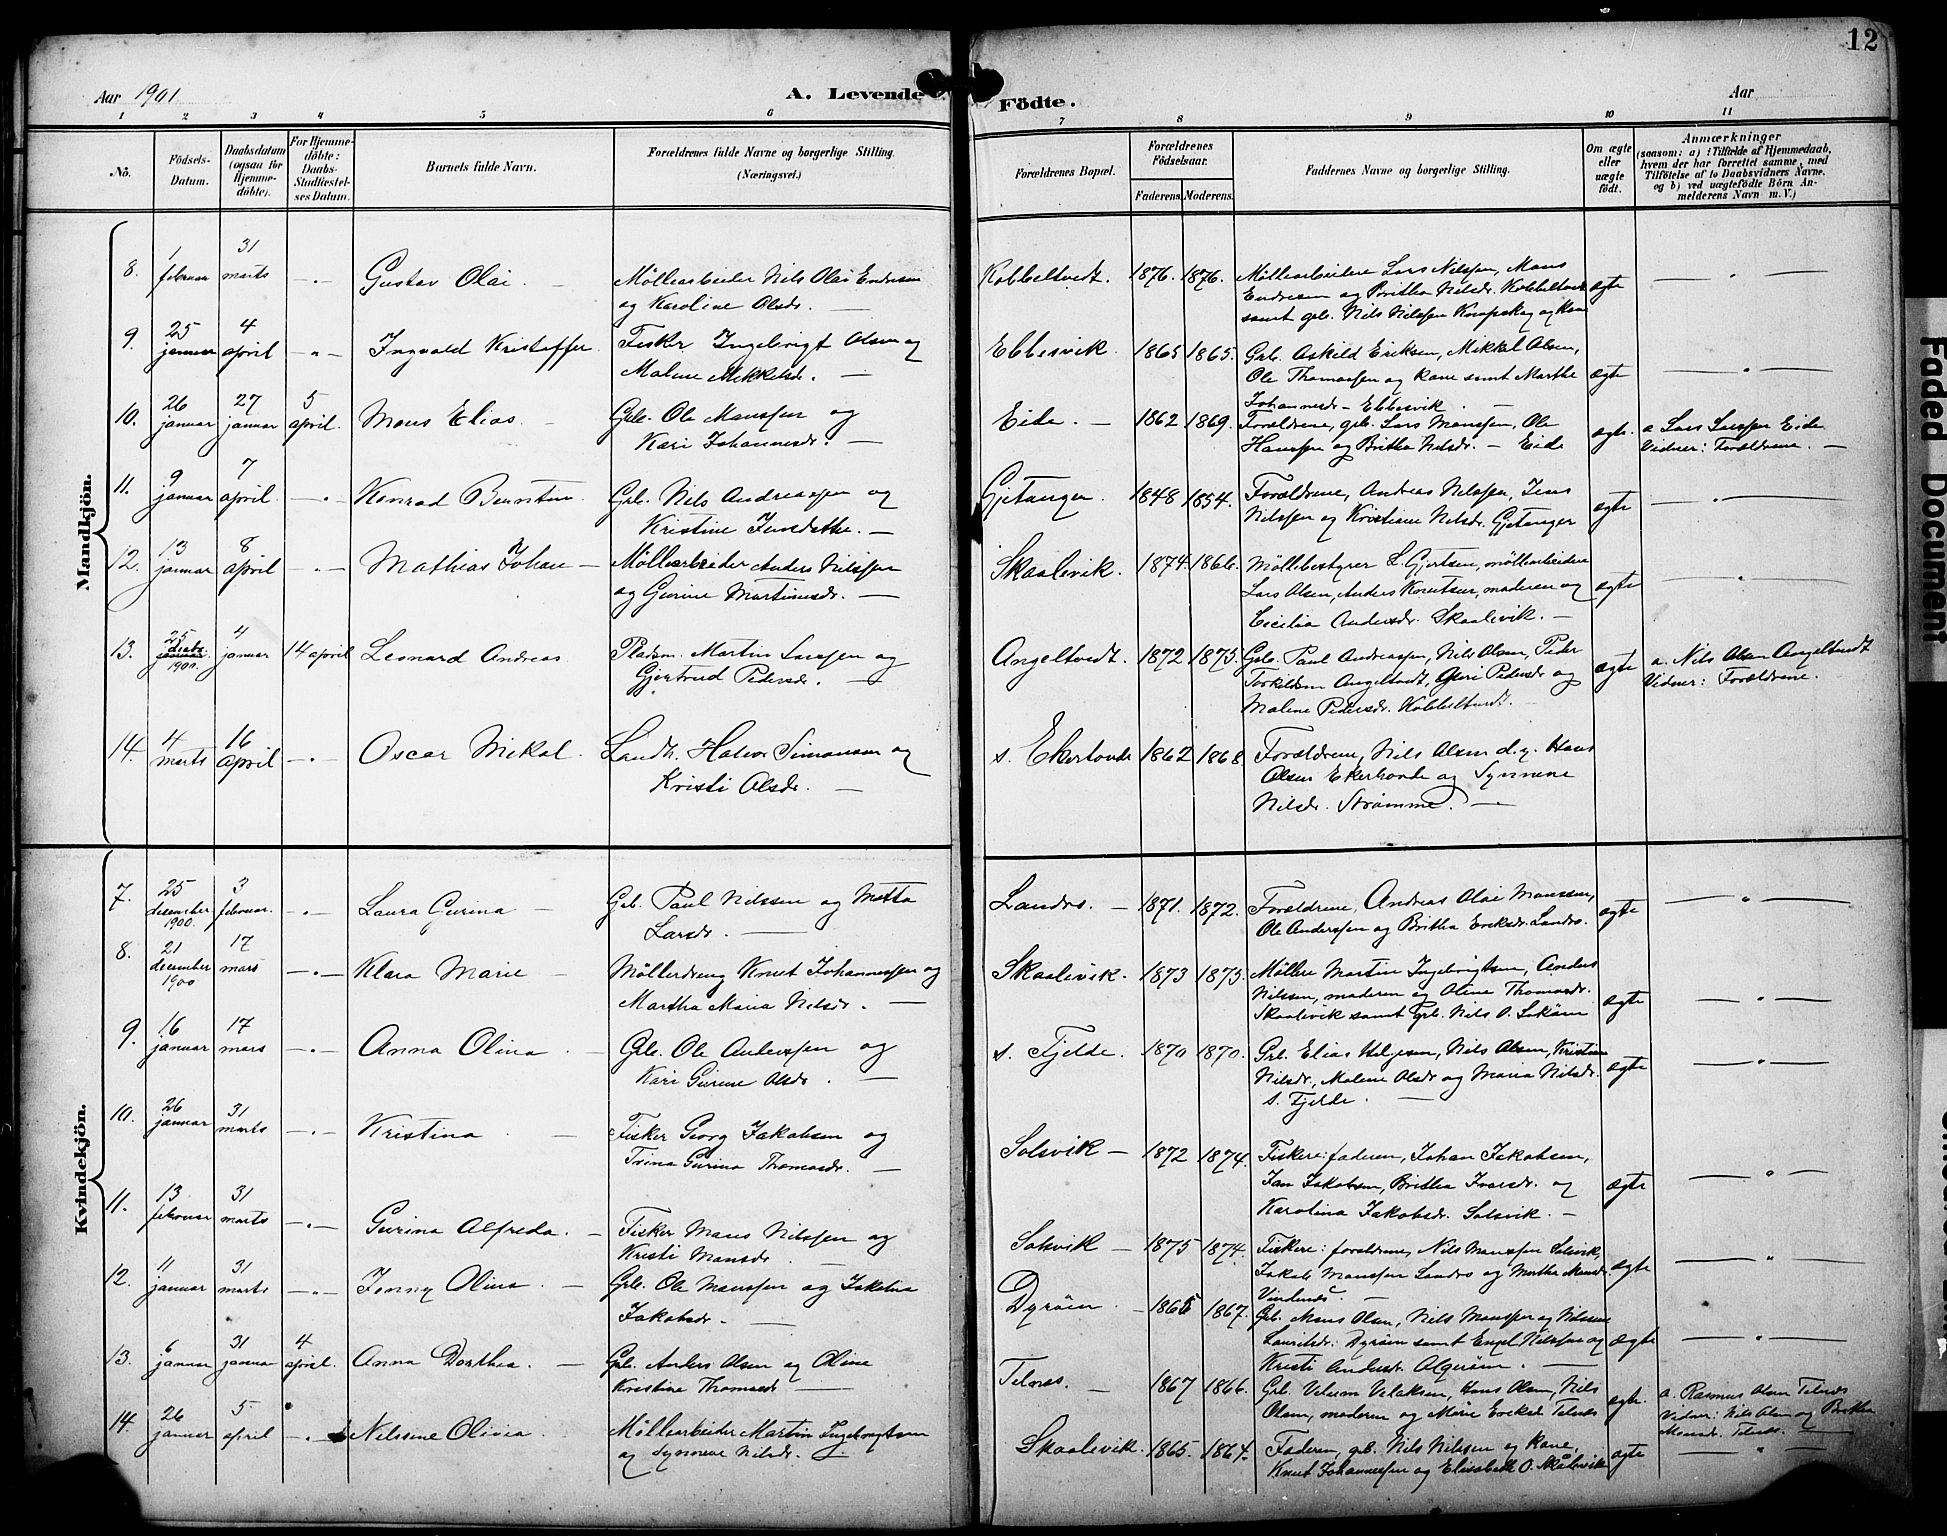 12
Aar 1901
A. Levende
Födte.
Aar
1 2 3 4 5 6 7 8 9 10 11
No.
Födsels-
Datum.
Daabsdatum
(ogsaa for
Hjemme-
döbte).
For Hjemme-
döbte:
Daabs-
Stadfæstel-
ses Datum.
Barnets fulde Navn.
Forældrenes fulde Navne og borgerlige Stilling.
(Næringsvei.)
Forældrenes Bopæl.
Forældrenes
Födselsaar.
Faderens. Moderens.
Faddernes Navne og borgerlige Stilling.
Om ægte
eller
uægte
födt.
Anmærkninger
(saasom: a) i Tilfælde af Hjemmedaab,
hvem der har forrettet samme, med
Tilföielse af to Daabsvidners Navne.
og b) ved uægtefödte Börn An-
melderens Navn m. V.)
Mandkjön.
8. 1 februar 31 marts Gustav Olai. Möllearbeider Nils Olai Endresen
og Karoline Olsdr.
Kobbeltvedt. 1876. 1876. Möllearbeidere Lars Nilssen, Mons
Endresen og Britha Nilsdr. Kobbeltvedt
samt grb. Nils Nilssen og kone
ægte
9. 25 januar 4 april Ingvald Kristoffer Fisker Ingebrigt Olsen og
Malene Mikkelsdr.
Ebbesvik. 1865 1865. Grb. Askild Eriksen, Mikkel Olsen,
Ole Thomassen og kone samt Marthe
Johannesdr. Ebbesvik.
ægte
10. 26 januar 27 januar 5 april. Mons Elias. Grb. Ole Monssen og
Kari Johannesdr.
Eide. 1862 1869. Forældrene, grb. Lars Monssen, Ole
Hanssen og Britha Nilsdr. Eide
ægte. a Lars Larssen Eide
Vidner: Forældrene.
11. 9 januar 7 april Konrad Berntin Grb. Nils Andreassen og
Kristine Jensdatter.
Gjetanger. 1848 1854. Forældrene, Andreas Nilssen, Jens
Nilssen og Kristiane Nilsdr. Gjetanger
ægte
12. 13 januar 8 april Mathias Johan Möllearbeider Anders Nilssen
og Gurine Martinusdr.
Skaalevik. 1874 1866. Möllebestyrer L. Gjertsen, möllearbeidere
Lars Olsen, Anders Knutsen, moderen og
Cecilia Andersdr. Skaalevik.
ægte
13. 25 decbr. januar 1900. 4 januar 14 april Leonard Andreas Pladsm. Martin Larssen og
Gjertrud Pedersdr.
Angeltvedt. 1872 1875. Grb. Paul Andreassen, Nils Olsen, Peder
Torkildsen Angeltvedt, Guri Pedersdr og
Malene Pedersdr. Kobbeltvedt.
ægte a. Nils Olsen Angeltvedt
Vidner: Forældrene.
14. 4 marts 16 april Oscar Mikal. Landh. Halvor Simonsen og
Kristi Olsdr.
s. Ekerhovde 1862 1868 Forældrene, Nils Olsen d.y. Hans
Olsen Ekerhovde og Synneve
Nilsdr. Strömme.
Kvindekjön.
7. 25 desember 1900. 3 februar. Laura Gurina Grb. Paul Nilssen og Metta
Larsdr.
Landro. 1871. 1872. Forældrene, Andreas Olai Monssen,
Ole Anderssen og Britha Eriksdr. Landro.
ægte
8. 21 december 1900 17 mars Klara Marie Möllerdreng Knut Johannessen og
Martha Maria Nilsdr.
Skaalevik. 1873 1873. Möllere Martin Ingebrigtsen, Anders
Nilssen, moderen og Oline Thomasdr.
Skaalevik samt Grb. Nils O.
ægte
9. 16 januar 17 mars Anna Olina Grb. Ole Anderssen og
Kari Gurine Olsdr.
s. Fjelde. 1870 1870. Grb. Elias Helgesen, Nils Olsen, Kristine
Nilsdr, Malene Olsdr og Maria Nilsdr.
s. Fjelde.
ægte
10. 26 januar 31 marts Kristina Fisker Georg Jakobsen og
Trina Gurina Thomasdr.
Solsvik 1872 1874. Fiskere: faderen, Johan Jakobsen,
Jan Jakobsen, Britha Ivarsdr. og
Karolina Jakobsdr. Solsvik.
ægte
11. 13 februar 31 marts Gurina Alfreda. Fisker Mons Nilssen og
Kristi Monsdr.
Solsvik 1875 1874. Fiskere: forældrene, Nils Monssen Solsvik,
Jakob Monssen Landro og Martha Monsdr.
Vindenes.
ægte
12. 11 januar 31 marts Jenny Olina. Grb. Ole Monssen og Jakobina
Jakobsdr.
Dyröen. 1865 1867. Grb. Mons Olsen, Nils Monssen og Nilsine
Lauritsdr. Dyröen samt Engel Nilssen og
Kristi Andersdr. Algeröen.
ægte
13. 6 januar 31 januar 4 april. Anna Dorthea. Grb. Anders Olsen og Oline
Kristine Thomasdr
Telnes. 1867 1866. Grb. Velum Velaksen, Hans Olsen, Nils
Olsen, moderen og Marie Eriksd. Telnes
ægte. a. Rasmus Olsen Telnes
Vidner: Nils Olsen og Britha
Monsdr. Telnes.
14. 26 januar 5 april Nilssine Olivia. Möllearbeider Martin Ingebrigtsen
og Synneve Nilsdr.
Skaalevik. 1865. 1864. Faderen, grb. Nils Nilssen og kone,
Knut Johannessen og Elisabeth O. Skålevik
ægte
Faded Document